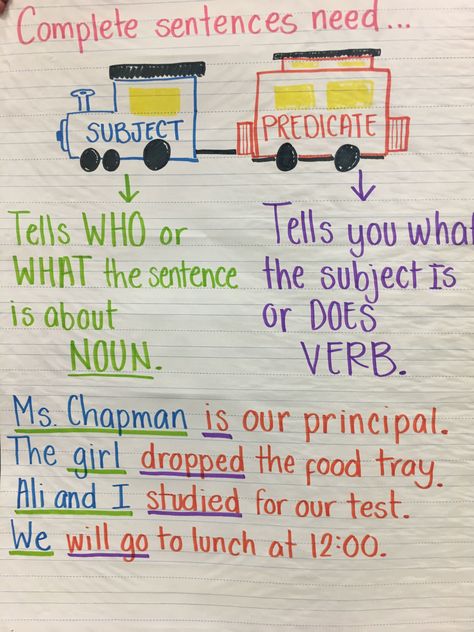 Complete sentences need...
SUBJECT
PREDICATE
Tells WHO or
WHAT the sentence
is about
NOUN.
Tells you what
the subject IS
or DOES
VERB.
Ms. Chapman is our principal.
The girl dropped the food tray.
Ali and I studied for our test.
We will go to lunch at 12:00.